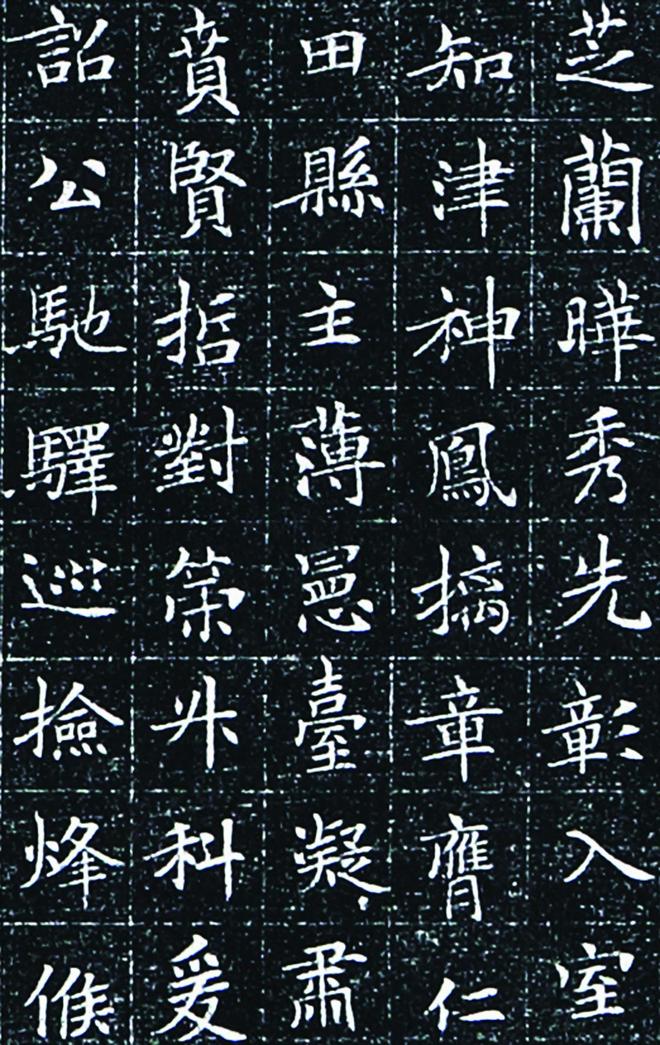 芝蘭曄秀先彰入室
知津神鳳摛章膺仁
田縣主薄憲臺凝肅
賁賢哲對策升科爰
詔公馳驛巡撿烽候